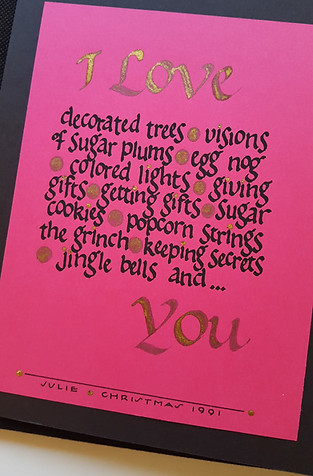 I Love
decorated trees • visions
of sugar plums • egg nog
• colored lights • giving
gifts • getting gifts • sugar
cookies • popcorn strings
the grinch • keeping secrets
• jingle bells and...
You
JULIE • CHRISTMAS 1991